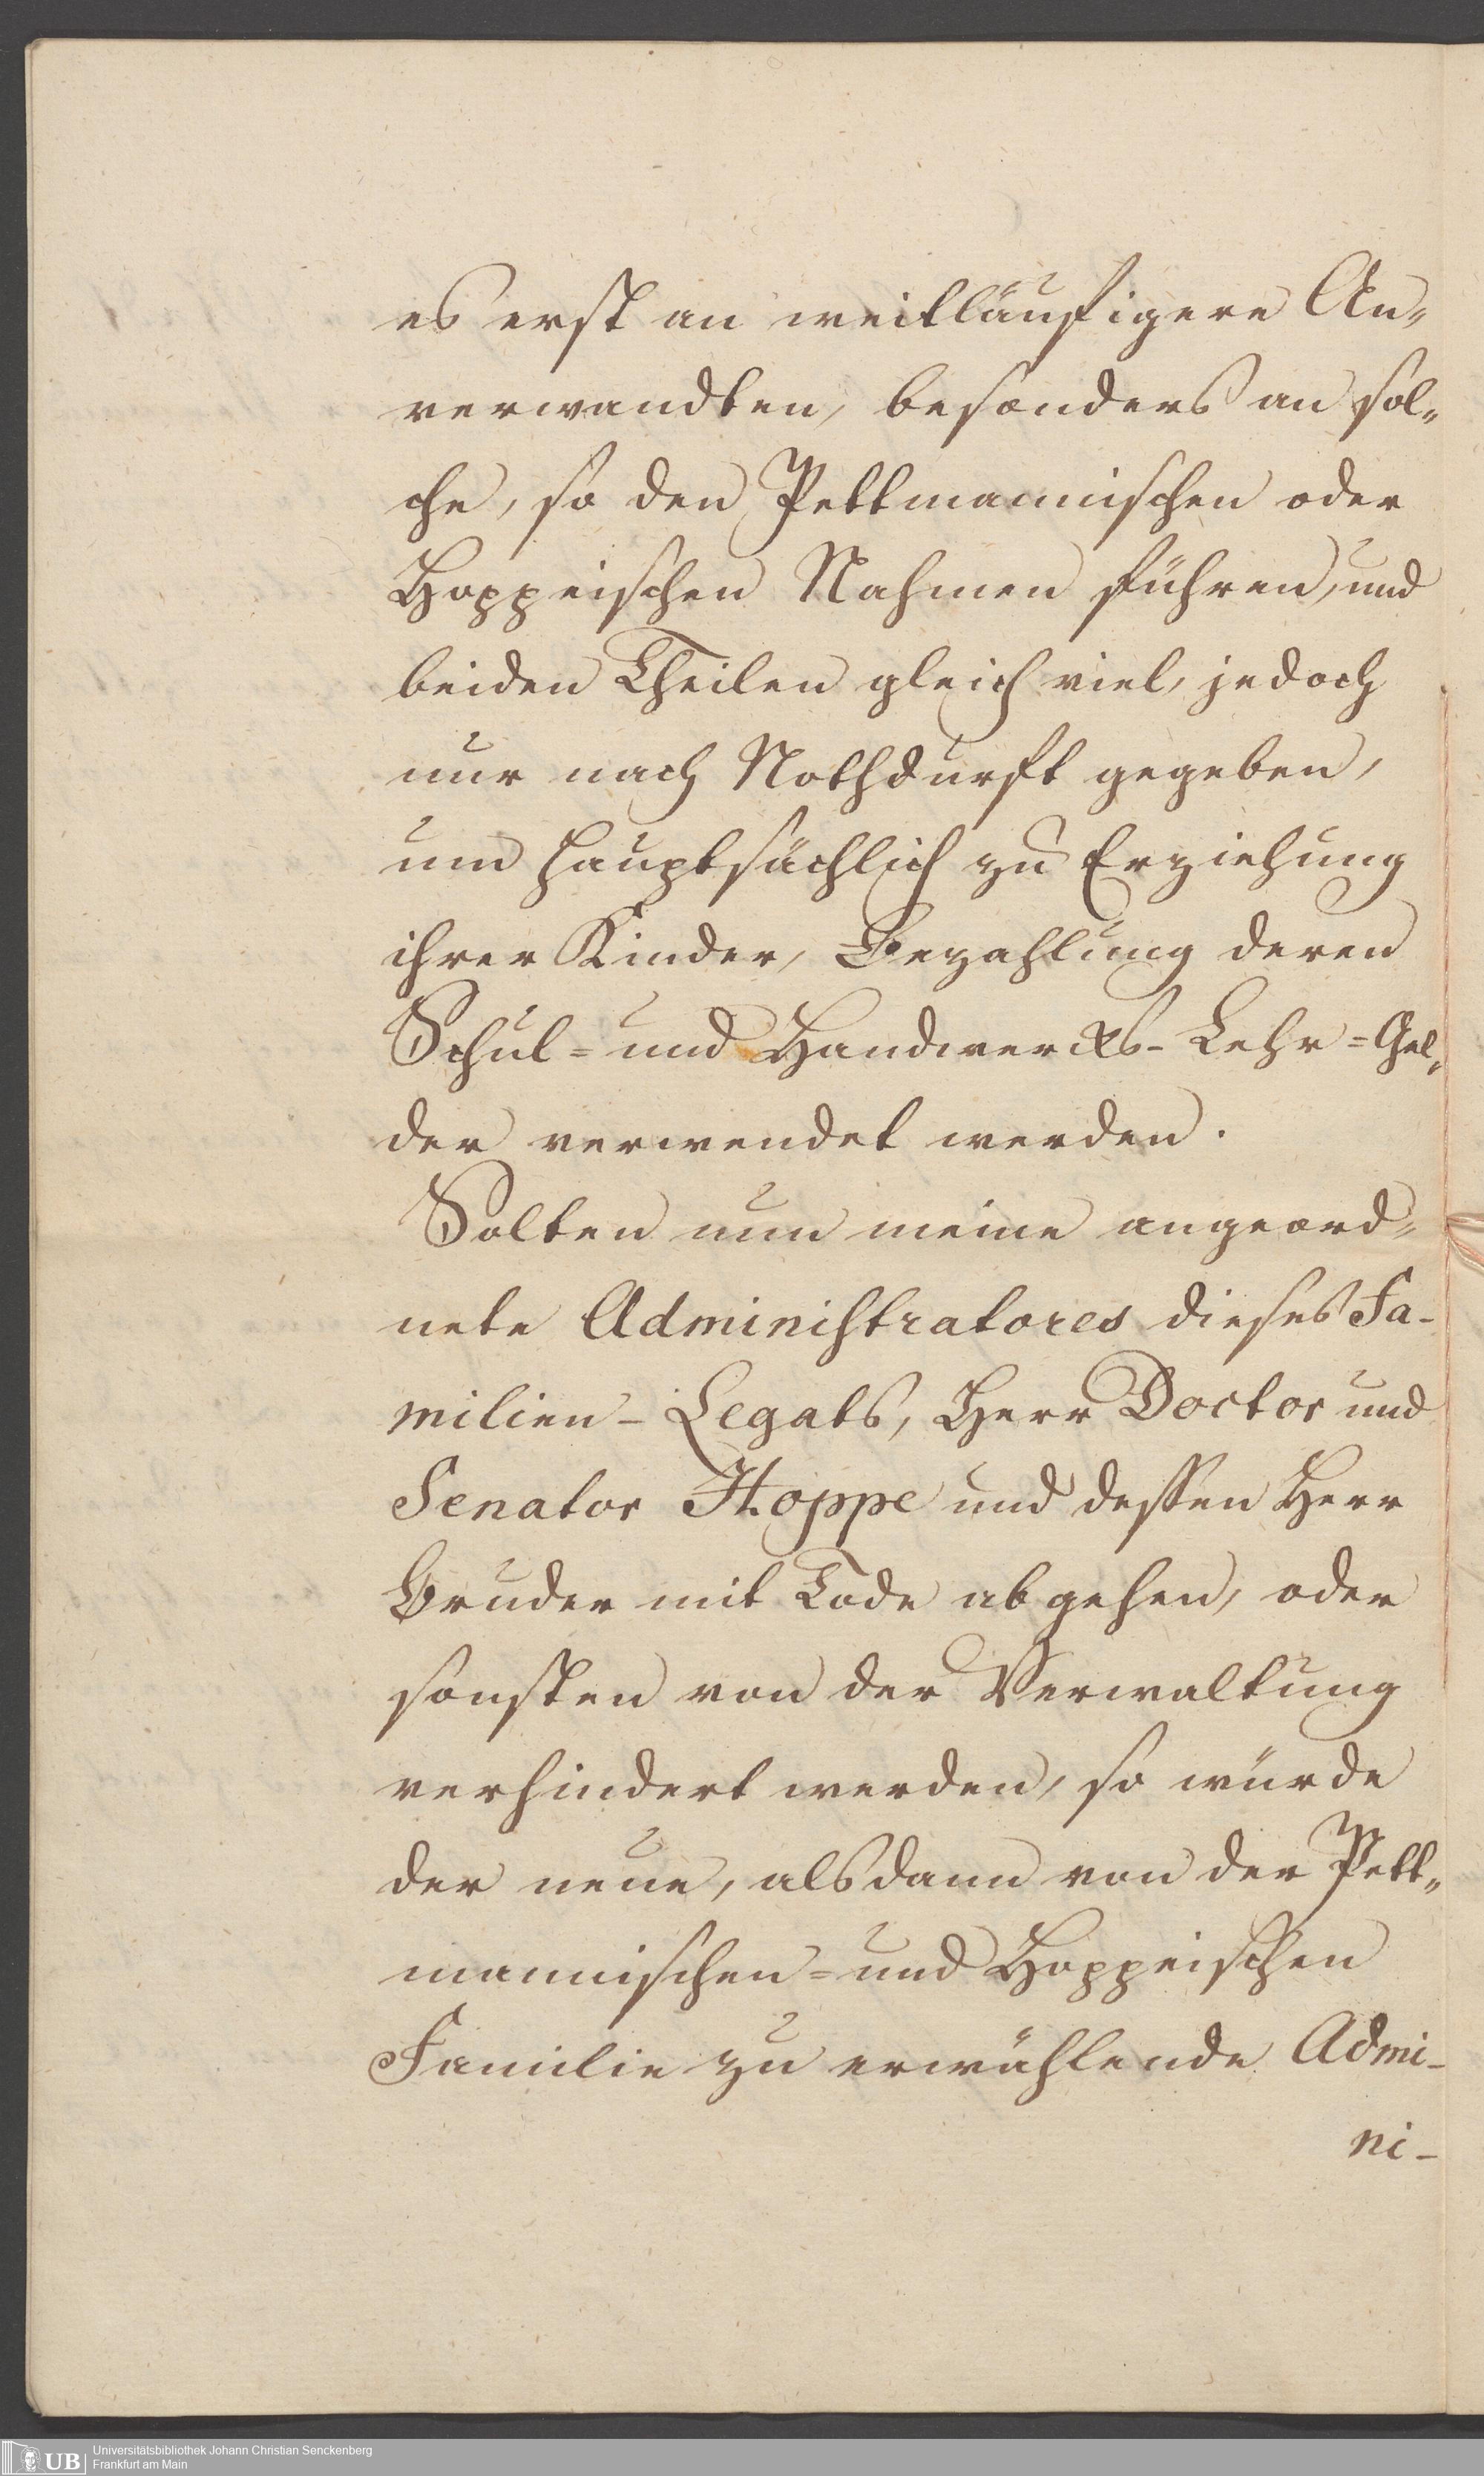 es erst an weitläufigere An„
verwandten, besonders an sol„
che, so den Pettmannischen oder
Hoppeischen Nahmen führen, und
beiden Theilen gleich viel, jedoch
nur nach Nothdurft gegeben,
um hauptsächlich zu Erziehung
ihrer Kinder, Bezahlung deren
Schul= und Handwercks-Lehr=Gel„
der verwendet werden.
Solten nun meine angeord„
nete Administratores dieses Fa-
milien-Legats, Herr Doctor und
Senator Hoppe und dessen Herr
Bruder mit Tode abgehen, oder
sonsten von der Verwaltung
verhindert werden, so würde
der neue, alsdann von der Pett„
mannischen= und Hoppeischen
Familie zu erwählende Admi-
ni-
UB
Universitätsbibliothek Johann Christian Senckenberg
Frankfurt am Main